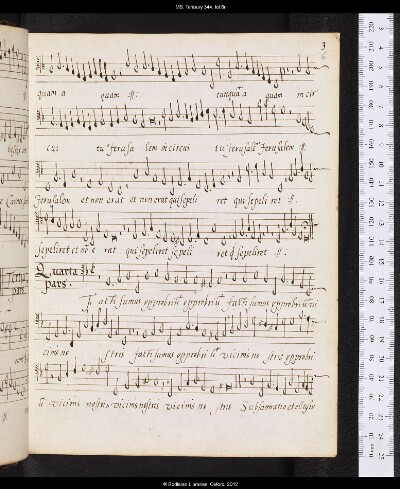 MS. Tenbury 344, fol.6r
3
quam a quam :||: tanquā a quam in cir
cui tu Jerusa lem in circui tu Jerusalē Jerusalem :||:
Jerusalem et non erat et non erat qui sepeli ret qui sepeli ret :||:
sepeliret et nō e rat qui sepeliret sepeli ret q sepeliret :||:
Quarta
pars.
Facti sumus opprobriū opprobriū facti sumus opprobriū vi
cinis no stris facti sumus opprobri ū vicinis no stris opprobri
ū vicinis nostris vicinis nostris vicinis no stris Subsannatio et
© Bodleian Libraries, Oxford, 2012